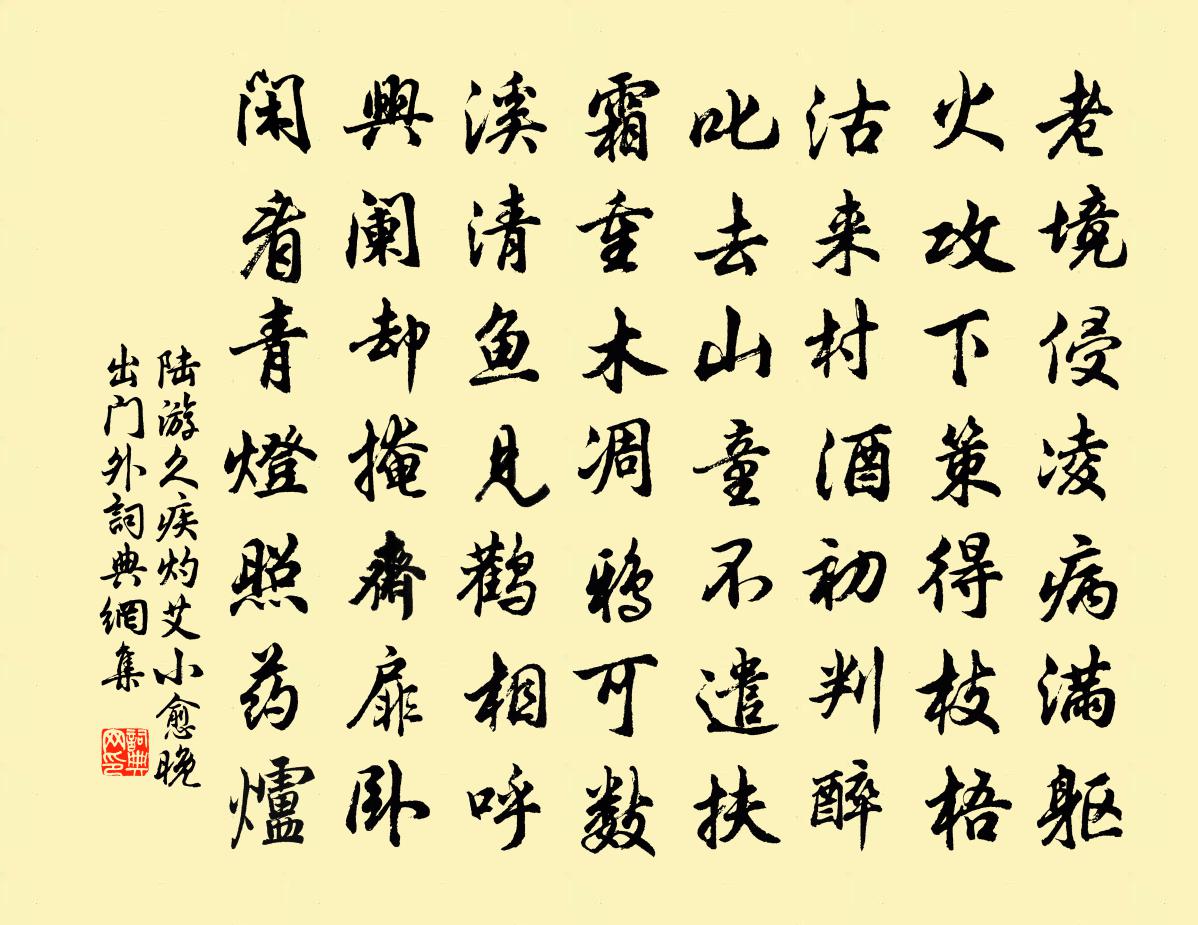 老境侵凌病满躯
火攻下策得枝梧
沽来村酒初判醉
叱去山童不遣扶
霜重木凋鸦可数
溪清鱼见鹳相呼
興阑却掩齋扉卧
闲看青燈照药爐
陆游久疾灼艾小愈晚
出门外詞典網集
詞典网印